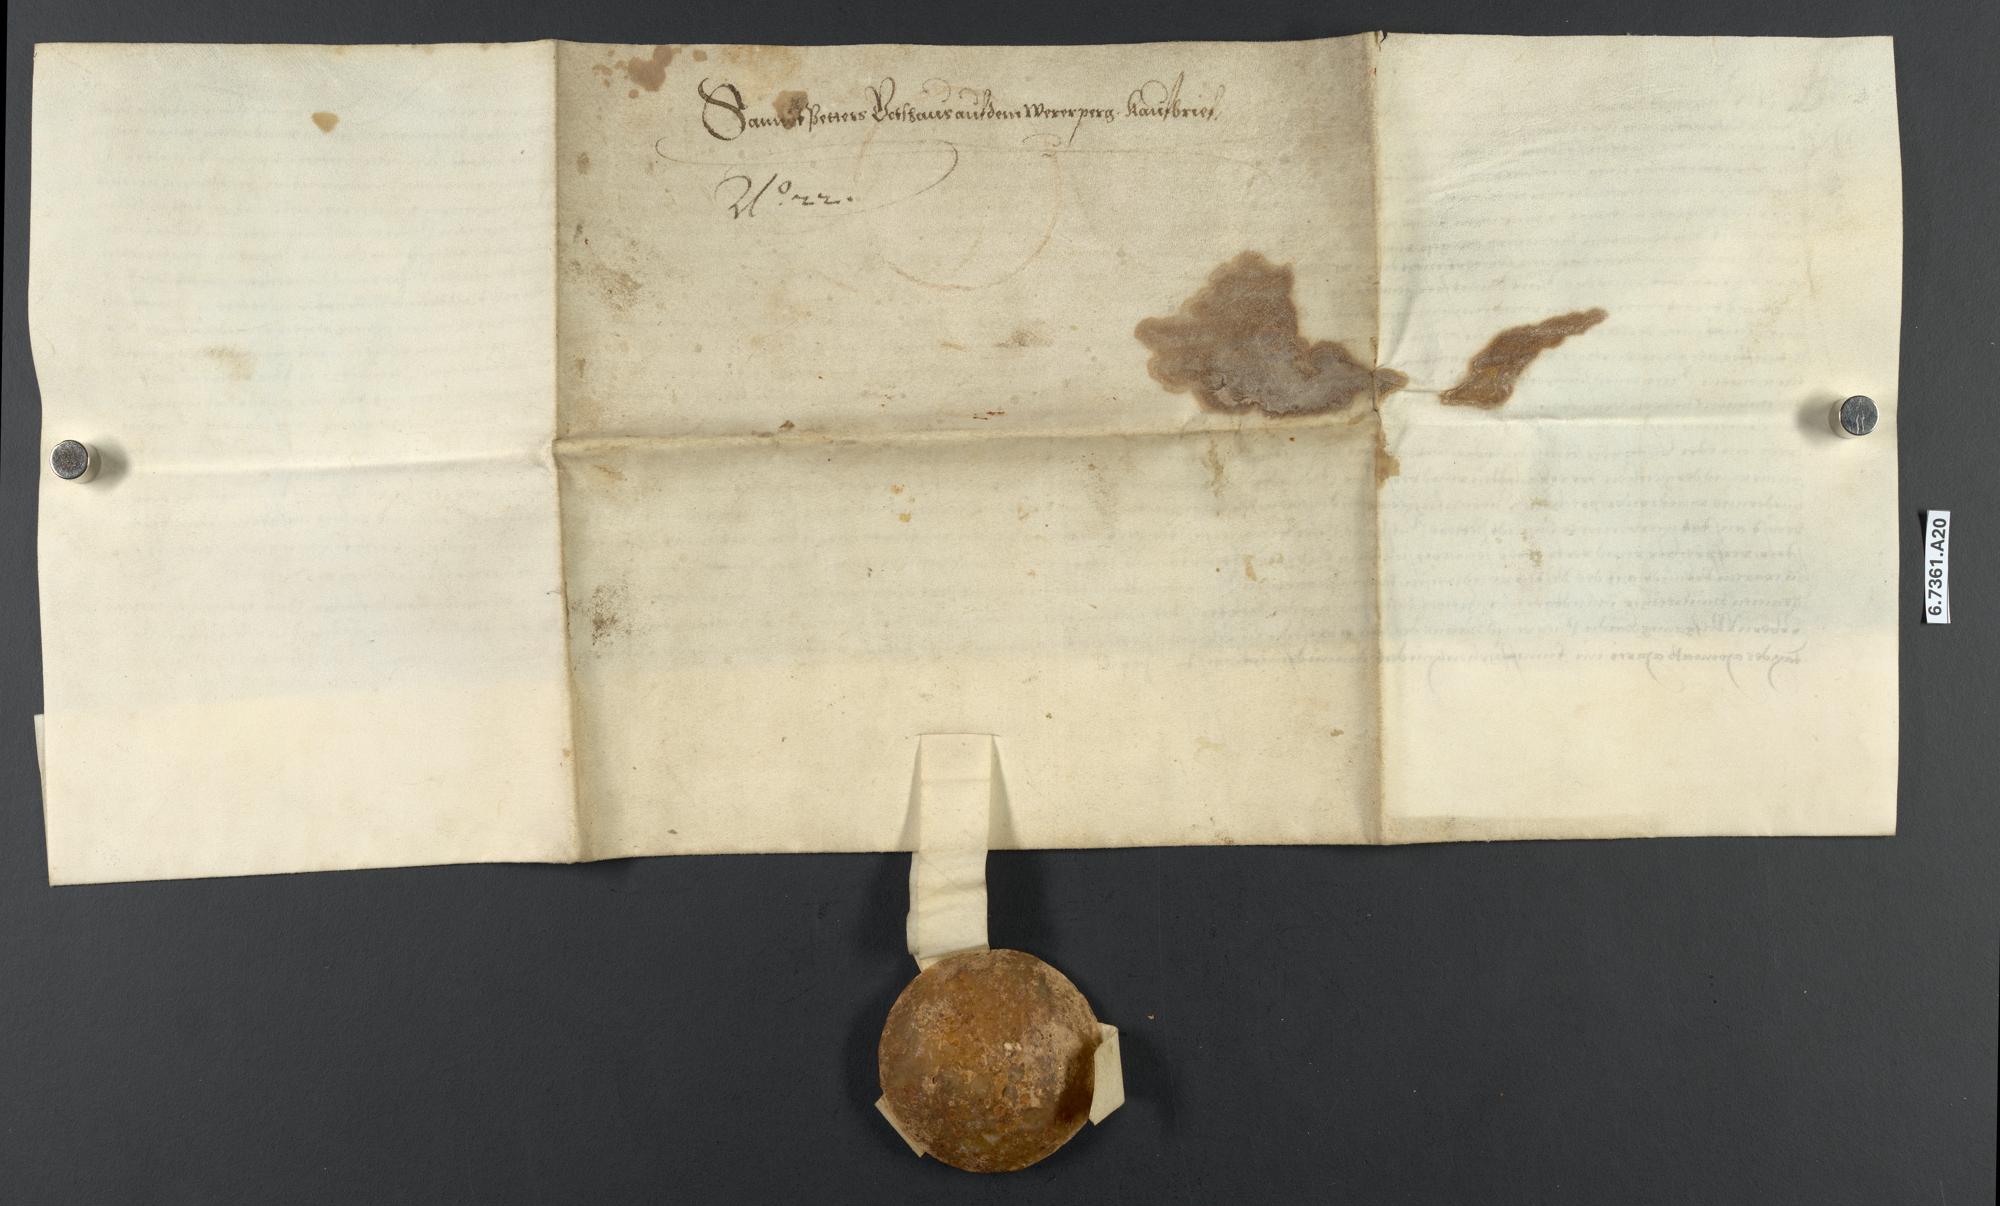 Sannct Petters Gotshaus auf dem Wererperg. Kaufbrief.
No. 22.
6.7361.A20